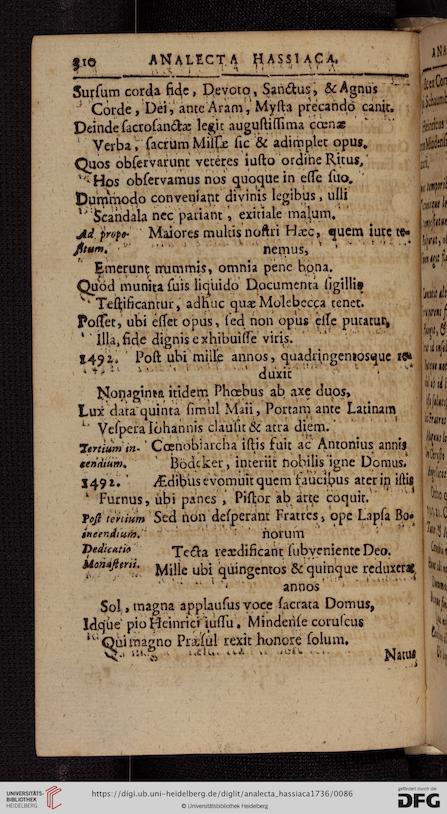 310 ANALECTA HASSIACA.
Surſum corda fide, Devoto, Sanctus, & Agnus
Corde, Dei, ante Aram, Myſta precando canit.
Deinde ſacroſanctæ legit auguſtiſſima cœnæ
Verba, ſacrum Miſſæ ſic & adimplet opus.
Quos obſervarunt veteres iuſto ordine Ritus,
Hos obſervamus nos quoque in eſſe ſuo.
Dummodo conveniant divinis legibus, ulli
Scandala nec pariant, exitiale malum.
Ad propo- Maiores multis noſtri Hæc, quem iure te-
ſitum. nemus,
Emerunt nummis, omnia pene bona.
Quod munita ſuis liquido Documenta ſigillis
Teſtificantur, adhuc quæ Molebecca tenet.
Poſſet, ubi eſſet opus, ſed non opus eſſe putatur,
Illa, fide dignis exhibuiſſe viris.
1492. Poſt ubi mille annos, quadringentosque re-
duxit
Nonaginta itidem Phœbus ab axe duos,
Lux data quinta ſimul Maii, Portam ante Latinam
Veſpera Iohannis clauſit & atra diem.
Tertium in- Cœnobiarcha iſtis fuit ac Antonius annis
cendium. Bödeker, interiit nobilis igne Domus.
1492. Ædibus evomuit quem faucibus ater in iſtis
Furnus, ubi panes, Piſtor ab arte coquit.
Poſt tertium Sed non deſperant Fratres, ope Lapſa Bo-
incendium. norum
Dedicatio Tecta reædificant ſubveniente Deo.
Monaſterii. Mille ubi quingentos & quinque reduxerat
annos
Sol, magna applauſus voce ſacrata Domus,
Idque pio Heinrici iuſſu, Mindenſe coruſcus
Qui magno Præſul rexit honore ſolum.
Natus
UNIVERSITÄTS-
BIBLIOTHEK
HEIDELBERG
https://digi.ub.uni-heidelberg.de/diglit/analecta_hassiaca1736/0086
© Universitätsbibliothek Heidelberg
gefördert durch die
DFG